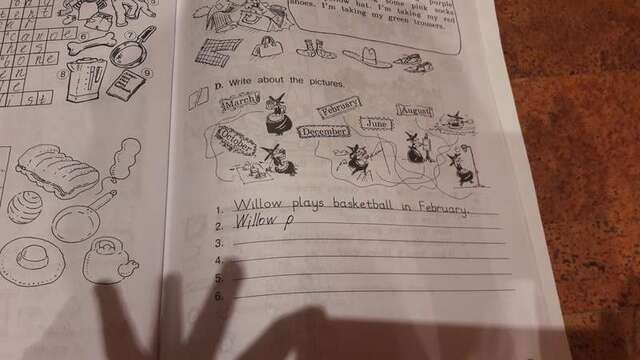 purple
some pink socks
hat. I'm taking my red
shoes. I'm taking my green trousers.
6
7
8
9
D. Write about the pictures.
March
February
August
June
October
December
1. Willow plays basketball in February.
2. Willow p
3.
4.
5.
6.